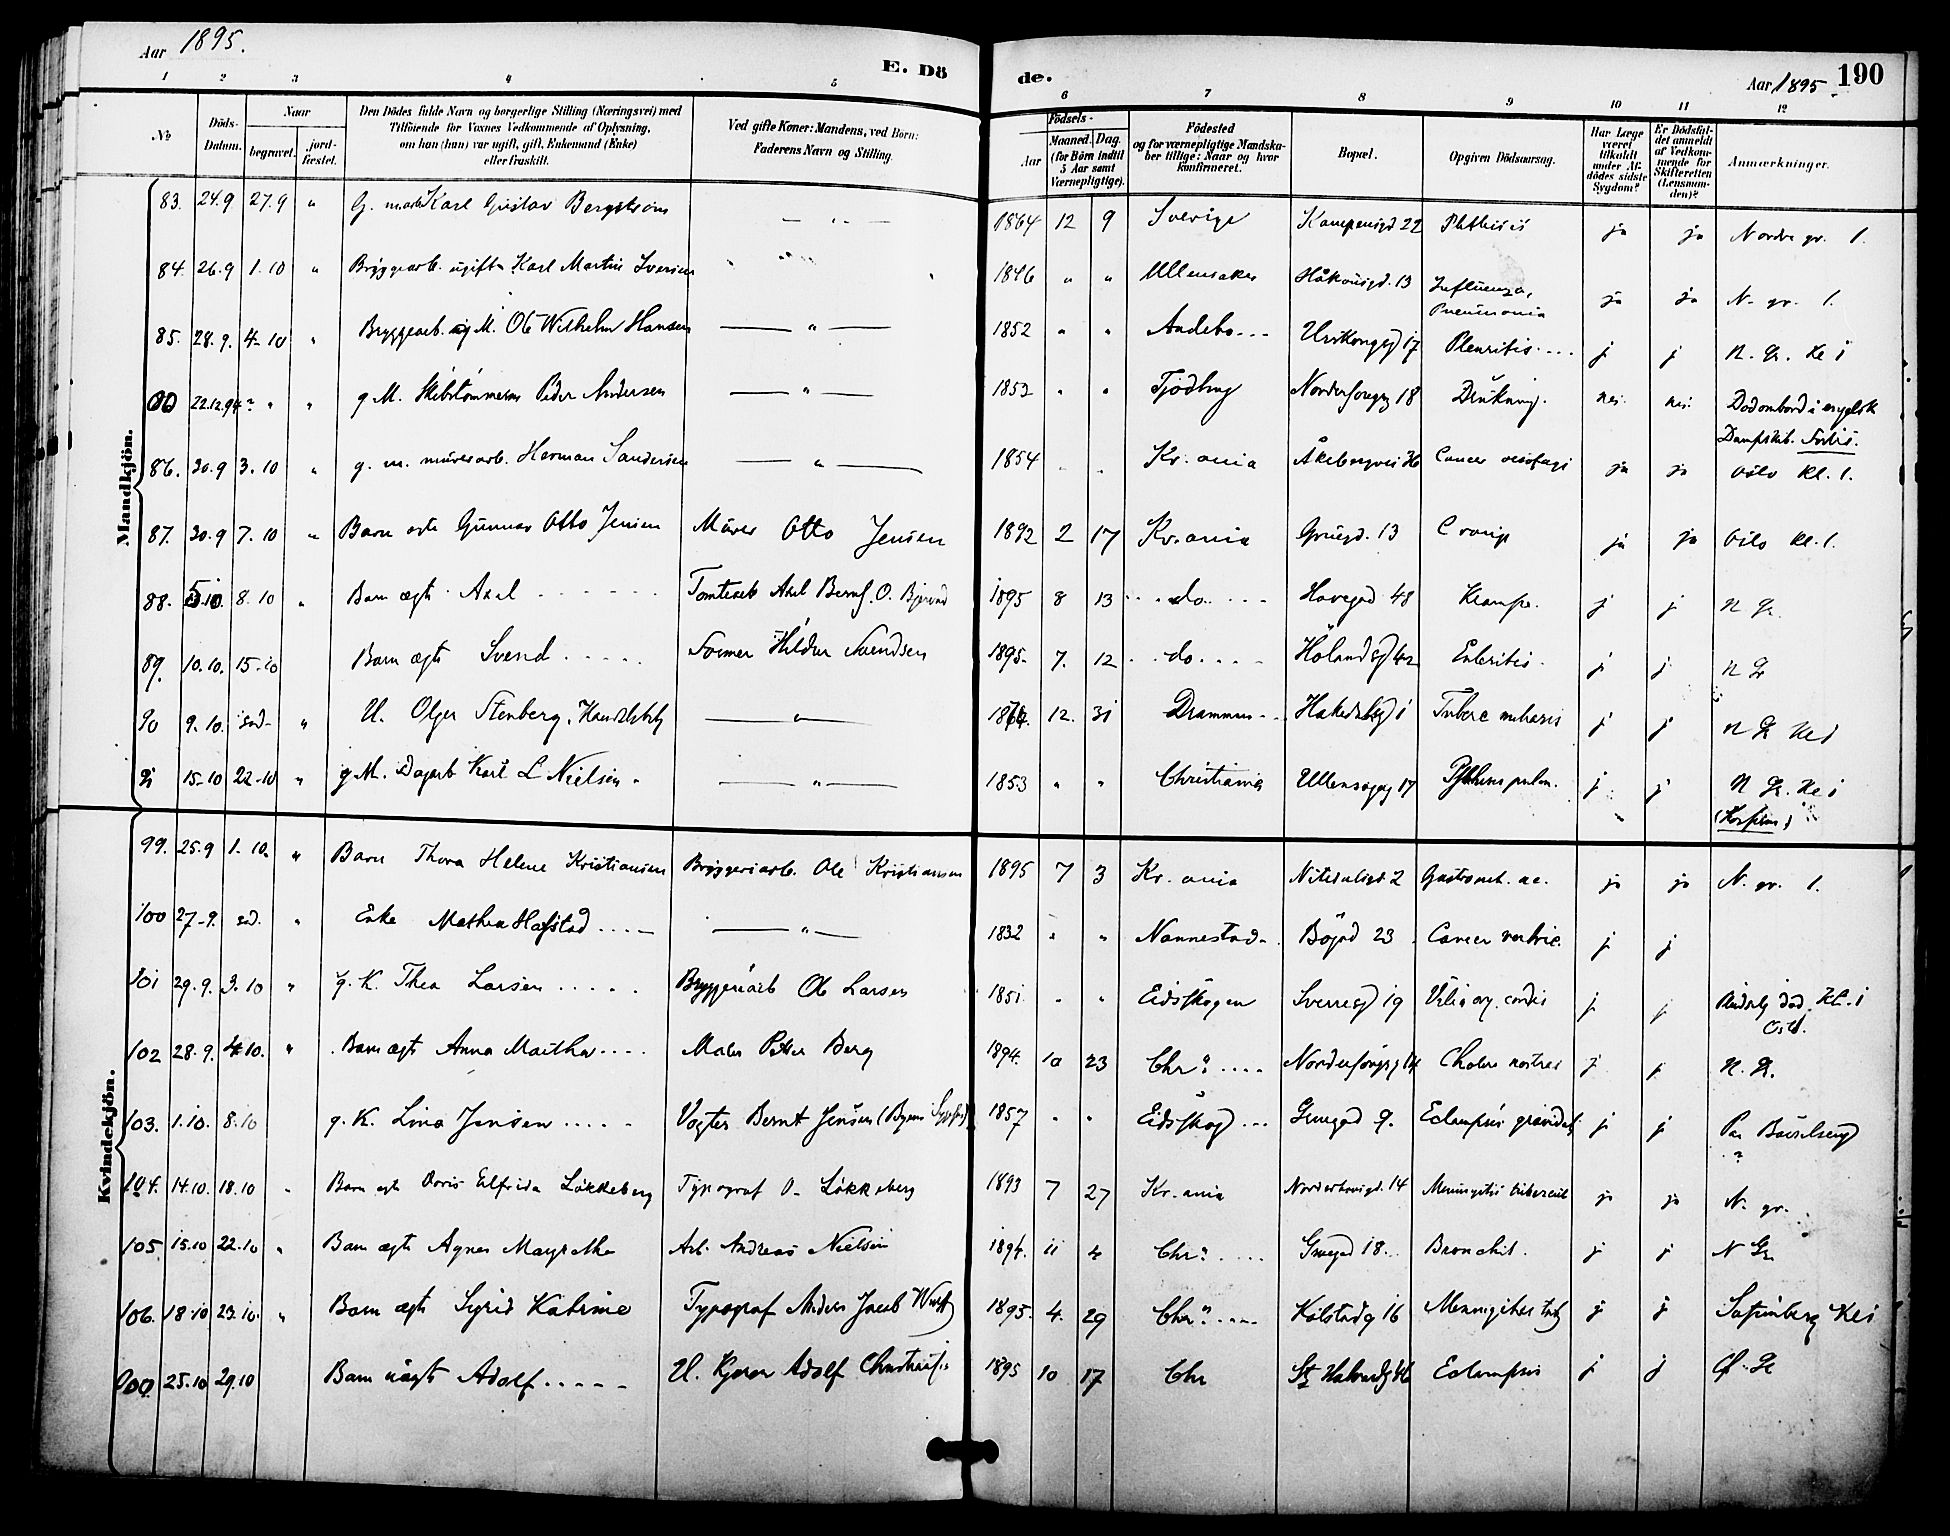 Aar 1895.
E. Dö
de.
Aar 1895.
190
1 2 3 4 5 6 7 8 9 10 11 12
No
Döds-
Datum.
Naar
begravet.
jord-
fæstet.
Den Dödes fulde Navn og borgerlige Stilling (Næringsvei) med
Tilföiende for Voxnes Vedkommende af Oplysning,
om han (hun) var ugift, gift, Enkemand (Enke)
eller fraskilt.
Ved gifte Koner: Mandens, ved Börn:
Faderens Navn og Stilling.
Födsels-
Aar
Maaned. Dag.
(for Börn indtil
5 Aar samt
Værnepligtige).
Födested
og for værnepligtige Mandska-
ber tillige: Naar og hvor
konfirmeret.
Bopæl.
Opgiven Dödsaarsag.
Har Læge
været
tilkaldt
under Af-
dödes sidste
Sygdom?
Er Dödsfal-
det anmeldt
af Vedkom-
mende for
Skifteretten
(Lensman-
den)?
Anmærkninger.
Mandkjön.
83. 24.9 27.9 " G. Karl Gustav Bergström — " — 1864 12 9 Sverige Kampensgd 22 Phthisis ja ja Nordre gr. 1.
84. 26.9 1.10 " Bryggearb. ugift Karl Martin Iversen " 1846 " " Ullensaker Håkonsgd. 13 Influenza, Pneumonia ja ja N. gr. 1.
85. 28.9. 4-10 " Bryggearb. M. Ole Wilhelm Hansen — " — 1852 " " Andebo Urskoggd 17 Pleuritis j j N. Gr. Kl 1
00 22.12.94 " " g M. Skibstömmerm Peder Andersen — " — 1853 " " Tjödling Norderhovgg 18 Drukning. nei. nei. Död ombord i engelsk
Dampskib
86. 30.9 3.10 " g. m. murerarb. Herman Sandersen — " — 1854 " " Kr.ania Åkebergvei 36 Cancer oesofagi ja ja Oslo Kl. 1.
87. 30.9 7.10 " Barn ægte Gunnar Otto Jensen Murer Otto Jensen 1892 2 17 Kr.ania Grüegd. 13 Croup ja ja Oslo Kl. 1.
88. 5.10. 8.10 " Barn ægte Axel Axel 1895 8 13 do. Havegad 48 Krampe. j j N Gr.
89. 10.10. 15-10 Barn ægte Svend Former Hildur Svendsen 1895. 7. 12 do. Hölandsgd 42 Enteritis. j j. N Gr
90 9.10. " U. Olger Stenberg, — " — 12. 31 Drammen 1 j j N Gr Kl 1
91 15-10 22-10 " g M. Dagarb Karl L Nielsen — " — 1853 " " Christiania Ullensaggg 17 j j N Gr. Kl 1
Kvindekjön.
99. 25.9 1.10. " Barn Thora Helene Kristiansen Bryggeriarb. Ole Kristiansen 1895 7 3 Kr.ania Nitedalsgd. 2 Gastroent. ac. ja ja N. gr. 1.
100 27-9. sad. " Enke Mathea Hafstad — " — 1832 " " Nannestad Bögd 23 Cancer ventric. j j
101 29.9. 3.10 " g. K. Thea Larsen Bryggeriarb Ole Larsen 1851. " " Eidsskogen Sverresgd 19 Vitium org. cordis j j Kl. 1
102 28.9. 4.10. " Barn ægt Anna Martha Maler Petter Berg 1894. 10 23 Chr.a Norderhovgg 14 Cholera nostras j j N. Gr.
103. 1.10. 8.10 g. K. Lina Jensen Vogter Bernt Jensen 1857 " " Eidsskog Gruegad 9. Eclampsis gravidat j j
104. 14.10. 18.10 " Barn ægte Doris Elfrida Lökkeberg Typograf O. Lökkeberg 1893 7 27 Kr.ania Norderhovsgd. 14 Meningitis tubercul ja ja N. gr.
105 15.10 22.10 " Barn ægte Agnes Margrethe Arb. Andreas Nielsen 1894. 11 4 Chr.a Gruegad 18. Bronchit. j j N Gr.
106. 18.10 23.10. " Barn ægte Sigrid Katrine Typograf Anders Jacob 1895. 4. 29 Chr.a Kolstadg 16 j j Kl 1
000 25.10 29.10 Barn uægt Adolf U. Adolf 1895 10 17 Chr St Halvardg 46 Eclampsis j j Gr